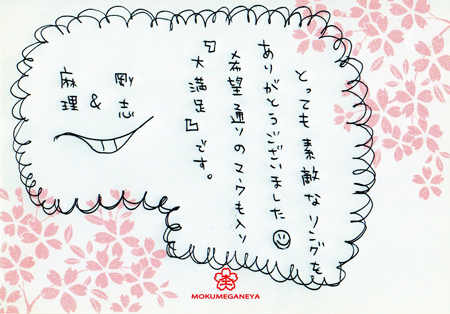 とっても素敵なリングを
ありがとうございました
希望通りのマークも入り
『大満足』です。
剛志
&
麻理
MOKUMEGANEYA